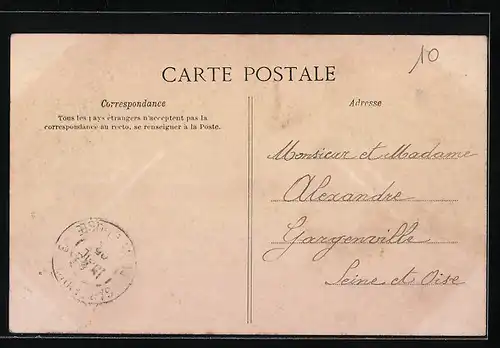 10
CARTE POSTALE
Correspondance
Tous les pays étrangers n'acceptent pas la
correspondance au recto, se renseigner à la Poste.
Adresse
Monsieur et Madame
Alexandre
Gargenville
Seine et Oise